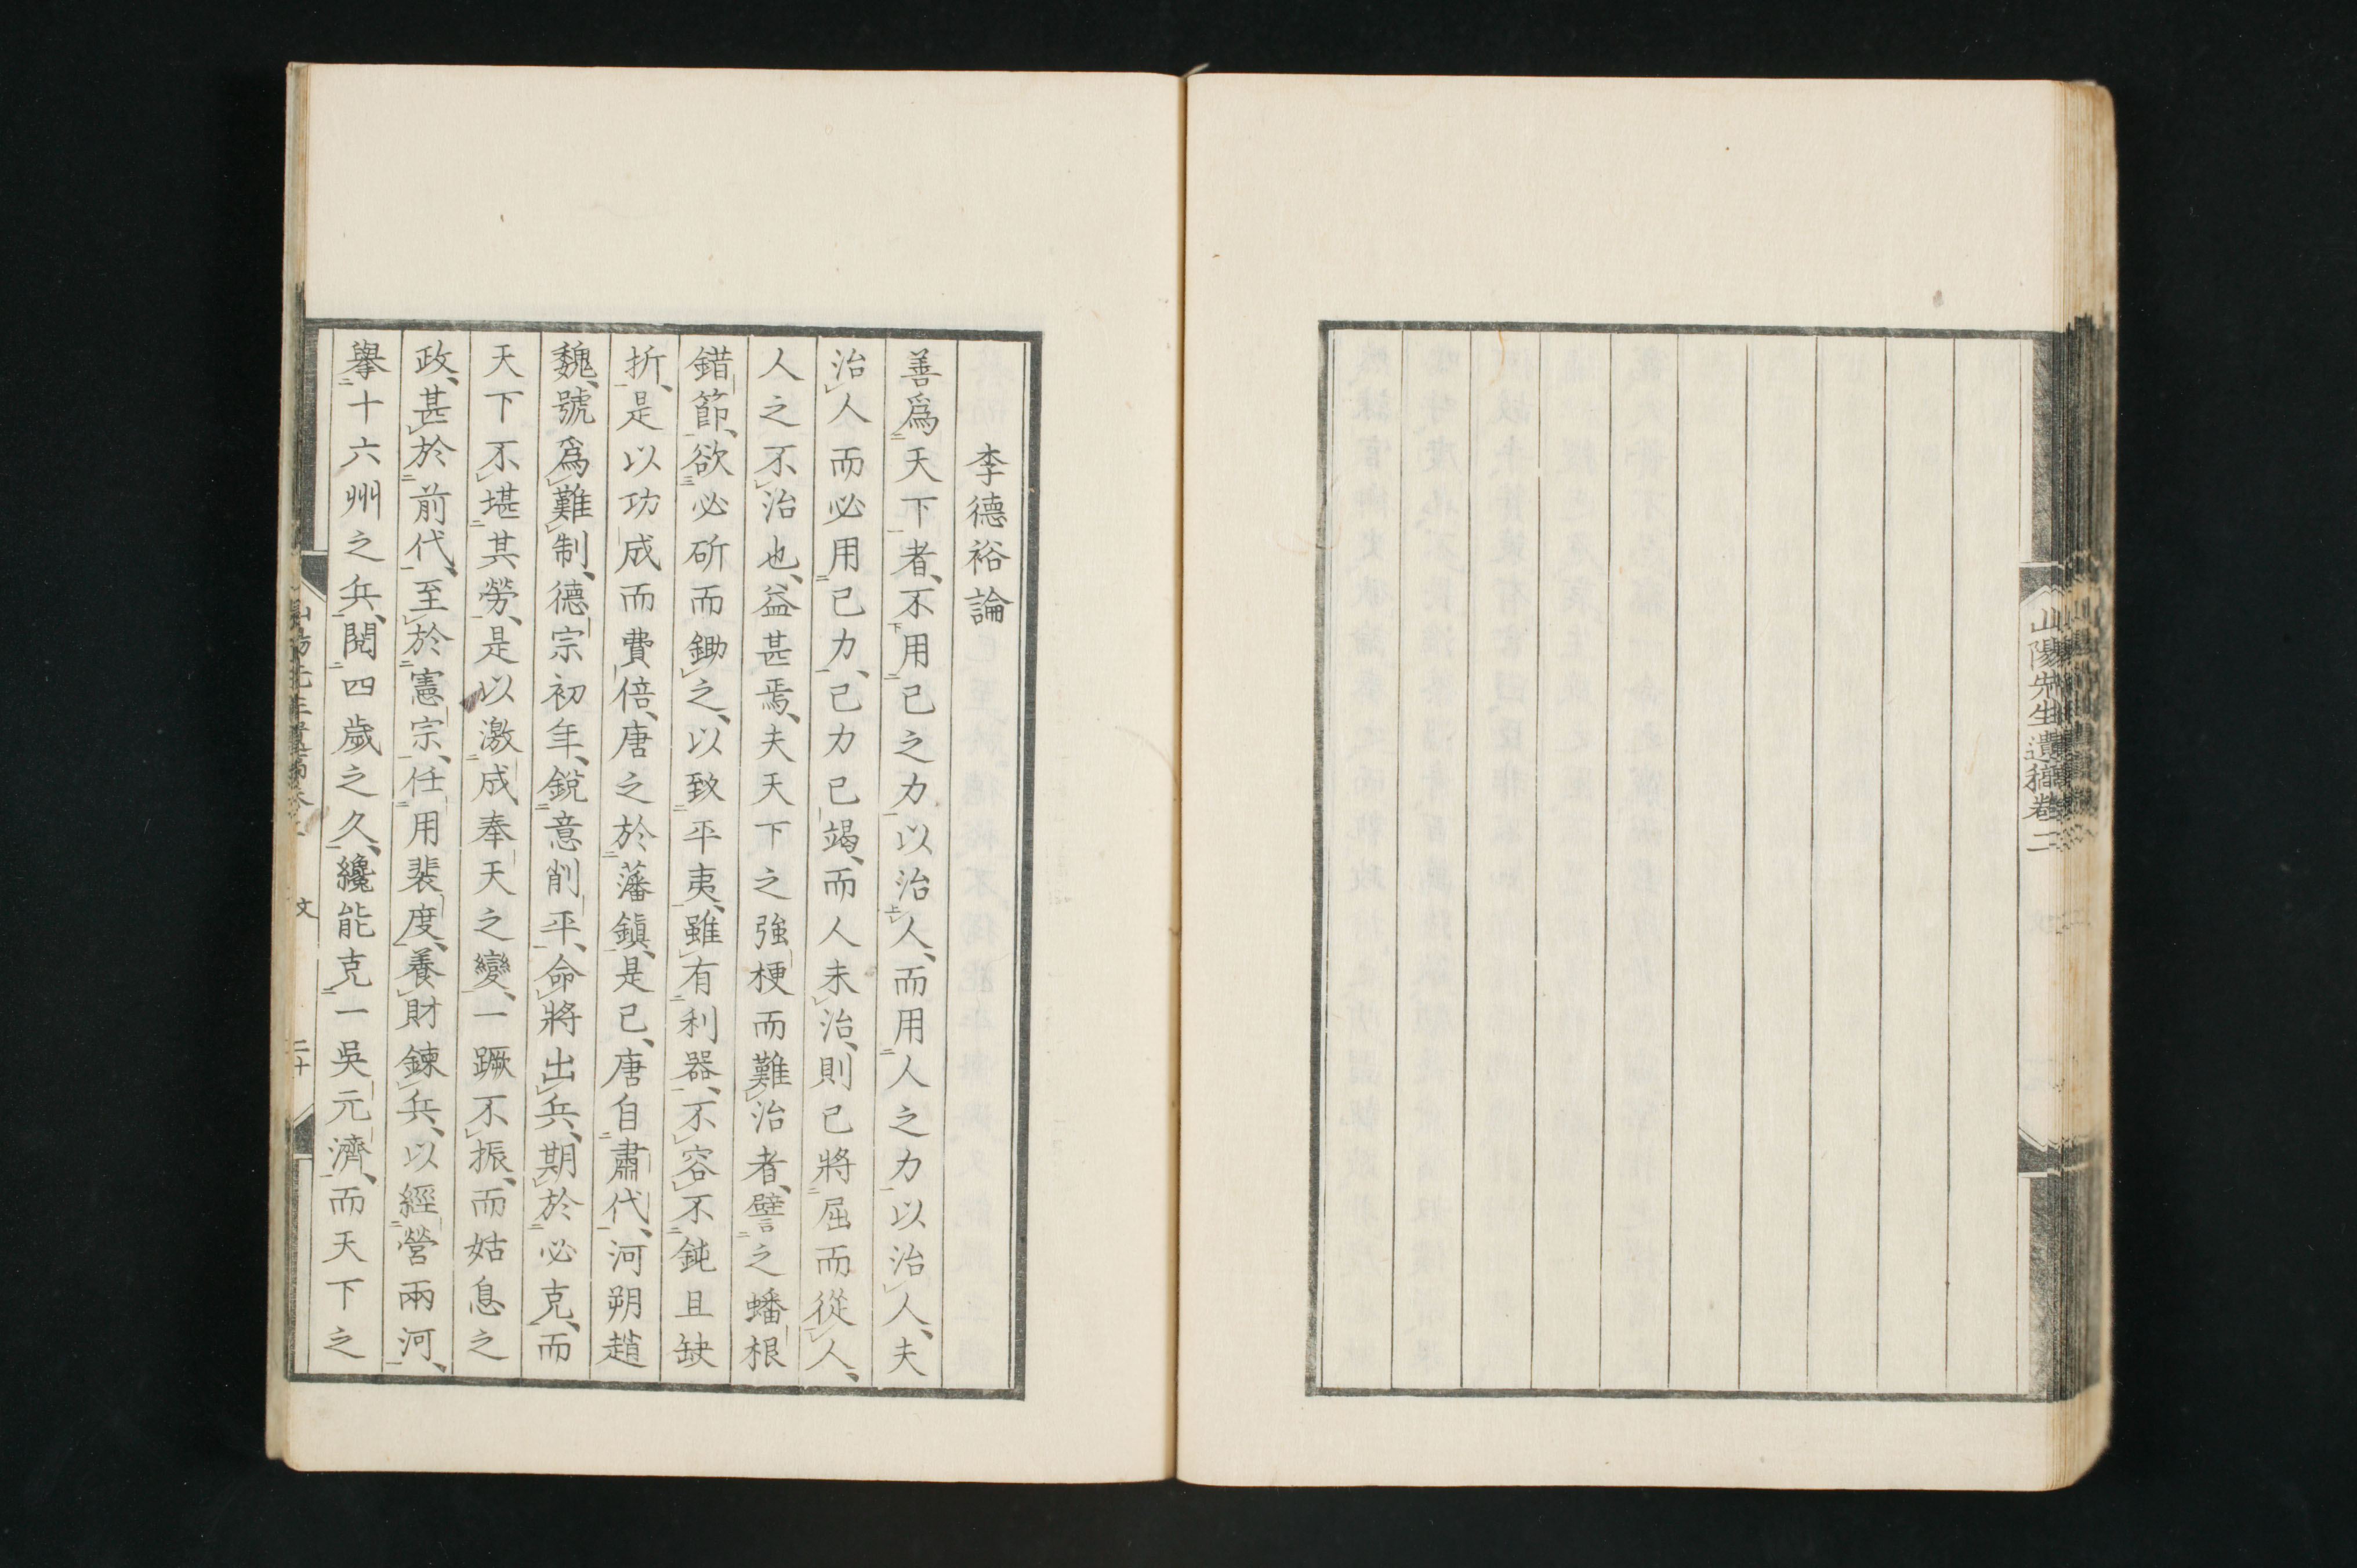 山陽先生遺稿卷二
李德裕論
善爲天下者、不用己之力以治人、而用人之力以治人、夫
治人而必用己力、己力已竭、而人未治、則己將屈而從人、
人之不治也、益甚焉、夫天下之強梗而難治者、譬之蟠根
錯節、欲必斫而鋤之、以致平夷、雖有利器、不容不鈍且缺
折、是以功成而費倍、唐之於藩鎭、是已、唐自肅代、河朔趙
魏、號爲難制、德宗初年、銳意削平、命將出兵、期於必克、而
天下不堪其勞、是以激成奉天之變、一蹶不振、而姑息之
政、甚於前代、至於憲宗、任用裴度、養財鍊兵、以經營兩河、
擧十六州之兵、閱四歲之久、纔能克一吳元濟、而天下之
文
二十